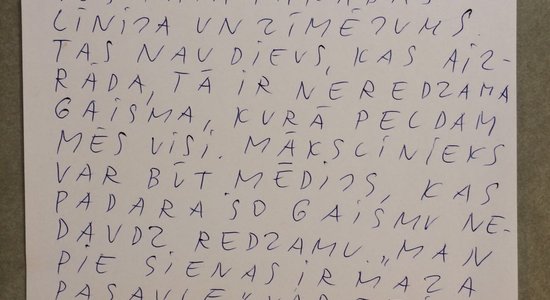 LĪNIJA UN ZĪMĒJUMS.
TAS NAV DIEVS, KAS AIZ-
RĀDA, TĀ IR NEREDZAMA
GAISMA, KURĀ PELDAM
MĒS VISI. MĀKSLINIEKS
VAR BŪT MĒDIJS, KAS
PADARA ŠO GAISMU NE-
DAUDZ REDZAMU. „MAN
PIE SIENAS IR MAZA